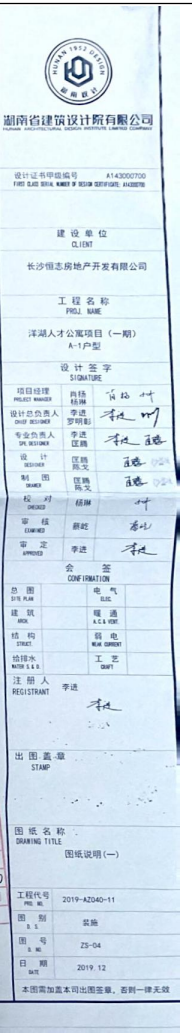 HUNAN 1952 DESIGN
湖南设计
湖南省建筑设计院有限公司
HUNAN ARCHITECTURAL DESIGN INSTITUTE LIMITED COMPANY
设计证书甲级编号 A143000700
FIRST CLASS SERIAL NUMBER OF DESIGN CERTIFICATE: A143000700
建设单位
CLIENT
长沙恒志房地产开发有限公司
工程名称
PROJ. NAME
洋湖人才公寓项目(一期)
A-1户型
设计签字
SIGNATURE
项目经理 肖杨
PROJECT MANAGER 杨琳
设计总负责人 李进
CHIEF DESIGNER 罗明彰
专业负责人 李进
SPE. DESIGNER 匡腾
设计 匡腾
DESIGNER 陈戈
制图 匡腾
DRAWER 陈戈
校对 杨琳
CHECKED
审核 蔡屹
EXAMINED
审定 李进
APPROVED
会签
CONFIRMATION
总图 电气
SITE PLAN ELEC.
建筑 暖通
ARCH. A.C. & VENT.
结构 弱电
STRUCT. WEAK CURRENT
给排水 工艺
WATER S & D CRAFT
注册人 李进
REGISTRANT
李进
出图盖章
STAMP
图纸名称
DRAWING TITLE
图纸说明(一)
工程代号 2019-AZ040-11
PRO. NO.
图别 装施
D. S.
图号 ZS-04
D. NO.
日期 2019.12
DATE
本图需加盖本司出图签章,否则一律无效